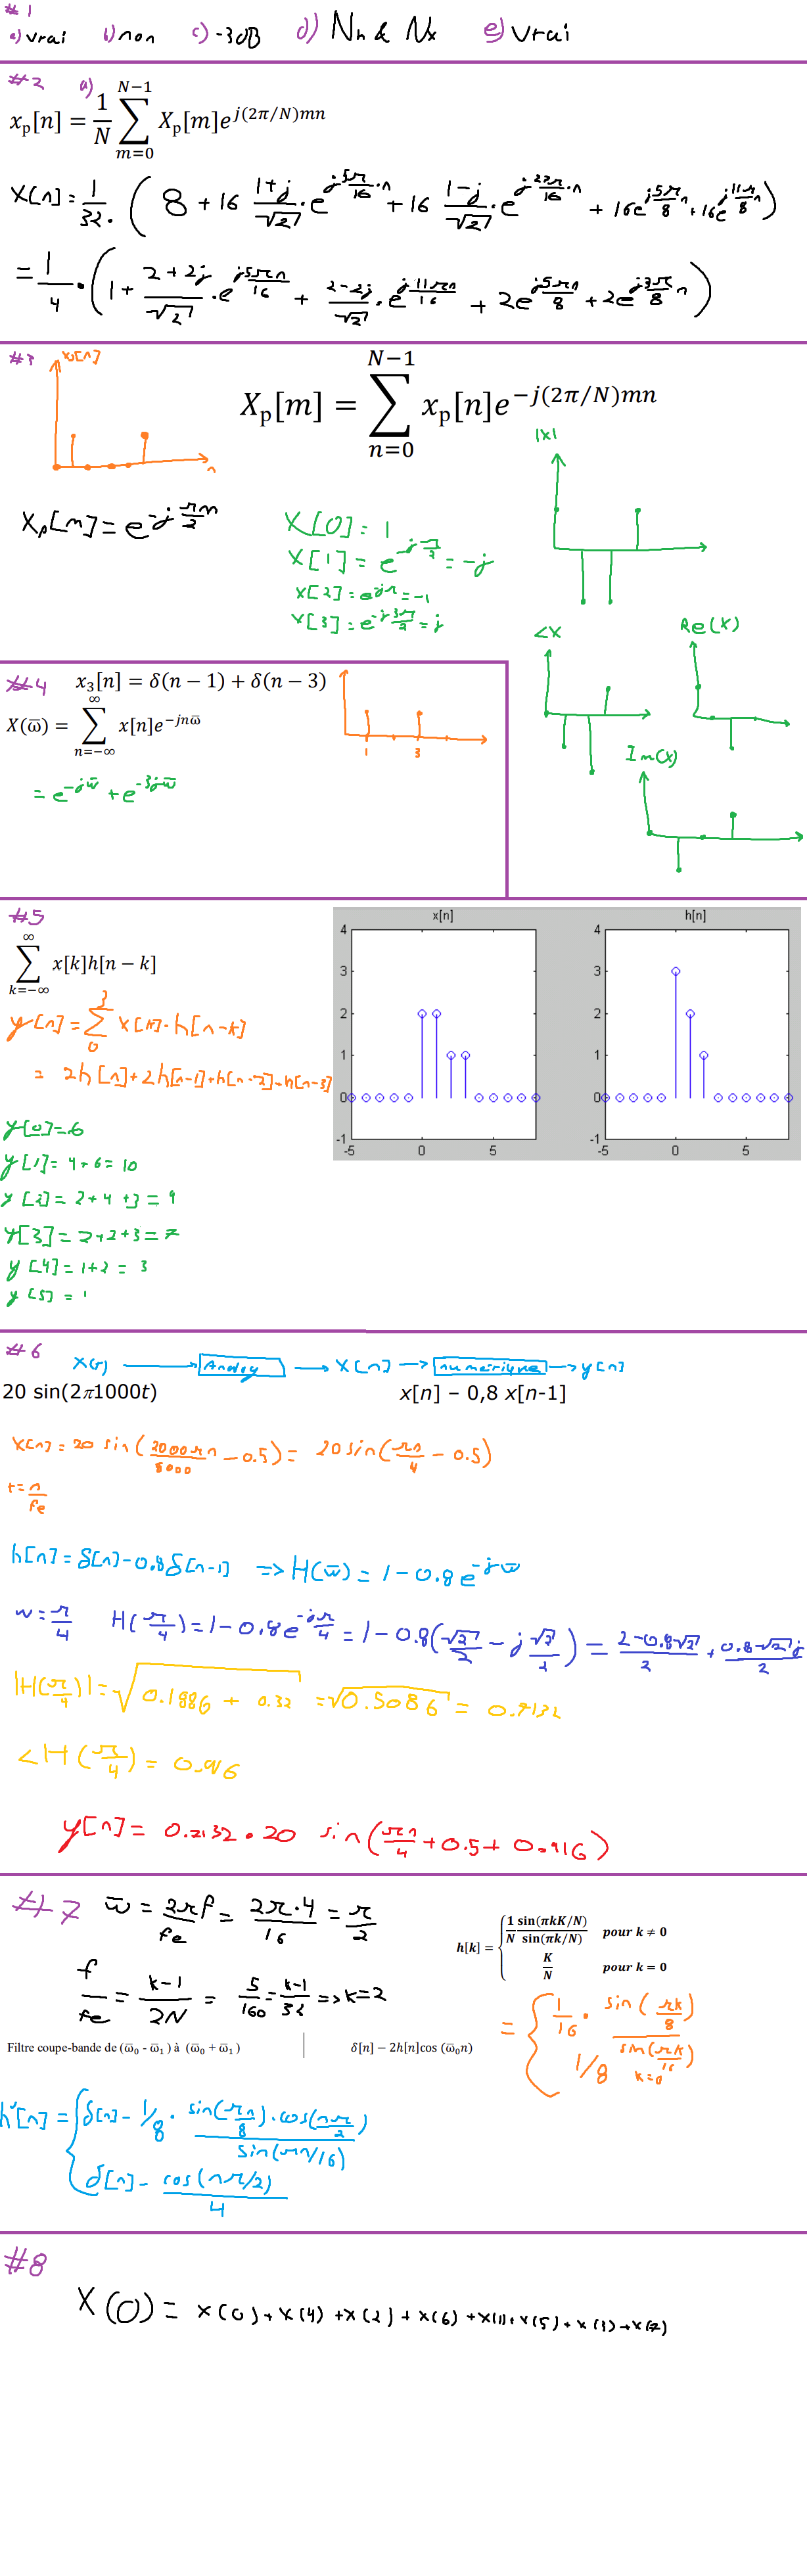 #1
a) vrai b) non c) -3dB d) Nh & Nx e) vrai
#2 a)
x_p[n] = 1/N ∑_{m=0}^{N−1} X_p[m]e^{j(2π/N)mn}
x[n] = 1/32 · ( 8 + 16 (1+j)/√2 · e^{j5π/16·n} + 16 (1-j)/√2 · e^{j27π/16·n} + 16e^{j5π/8 n} + 16e^{j11π/8 n} )
= 1/4 · ( 1 + (2+2j)/√2 · e^{j5πn/16} + (2-2j)/√2 · e^{j11πn/16} + 2e^{j5πn/8} + 2e^{j3π/8 n} )
#3 x[n]
n
X_p[m] = ∑_{n=0}^{N−1} x_p[n]e^{−j(2π/N)mn}
|X|
X_p[m] = e^{-jπm/2}
X[0] = 1
X[1] = e^{-jπ/2} = -j
X[2] = e^{-jπ} = -1
X[3] = e^{-j3π/2} = j
∠X
Re(X)
Im(X)
#4 x_3[n] = δ(n − 1) + δ(n − 3)
X(ω̅) = ∑_{n=−∞}^{∞} x[n]e^{−jnω̅}
1 3
= e^{-jω̅} + e^{-3jω̅}
#5
∑_{k=−∞}^{∞} x[k]h[n − k]
y[n] = ∑_{0}^{3} x[k]·h[n-k]
= 2h[n]+2h[n-1]+h[n-2]+h[n-3]
x[n]
4
3
2
1
0
-1
-5 0 5
h[n]
4
3
2
1
0
-1
-5 0 5
y[0]=6
y[1]=4+6=10
y[2]=2+4+3=9
y[3]=2+2+3=7
y[4]=1+2=3
y[5]=1
#6
x(t) → Analog → x[n] → numérique → y[n]
20 sin(2π1000t)
x[n] − 0,8 x[n-1]
x[n] = 20 sin(2000πn/8000 - 0.5) = 20 sin(πn/4 - 0.5)
t = n/fe
h[n] = δ[n]-0.8δ[n-1] => H(ω̅) = 1-0.8e^{-jω̅}
w = π/4 H(π/4) = 1-0.8e^{-jπ/4} = 1-0.8(√2/2 - j√2/2) = (2-0.8√2)/2 + (0.8√2 j)/2
|H(π/4)| = √(0.1886 + 0.32) = √0.5086 = 0.7132
∠H(π/4) = 0.916
y[n] = 0.7132 • 20 sin(πn/4 + 0.5 + 0.916)
#7 ω̅ = 2πf/fe = 2π·4/16 = π/2
f/fe = (k-1)/2N = 5/160 = (k-1)/32 => k=2
h[k] = { 1/N sin(πkK/N)/sin(πk/N) pour k ≠ 0
K/N pour k = 0
= { 1/16 · sin(πk/8)/sin(πk/16)
1/8 k=0
Filtre coupe-bande de (ω̅0 - ω̅1 ) à (ω̅0 + ω̅1 ) | δ[n] − 2h[n]cos (ω̅0n)
h'[n] = { δ[n] - 1/8 · sin(πn/8)·cos(nπ/2)/sin(πn/16)
δ[n] - cos(nπ/2)/4
#8
X(0) = x(0)+x(4)+x(2)+x(6)+x(1)+x(5)+x(3)+x(7)